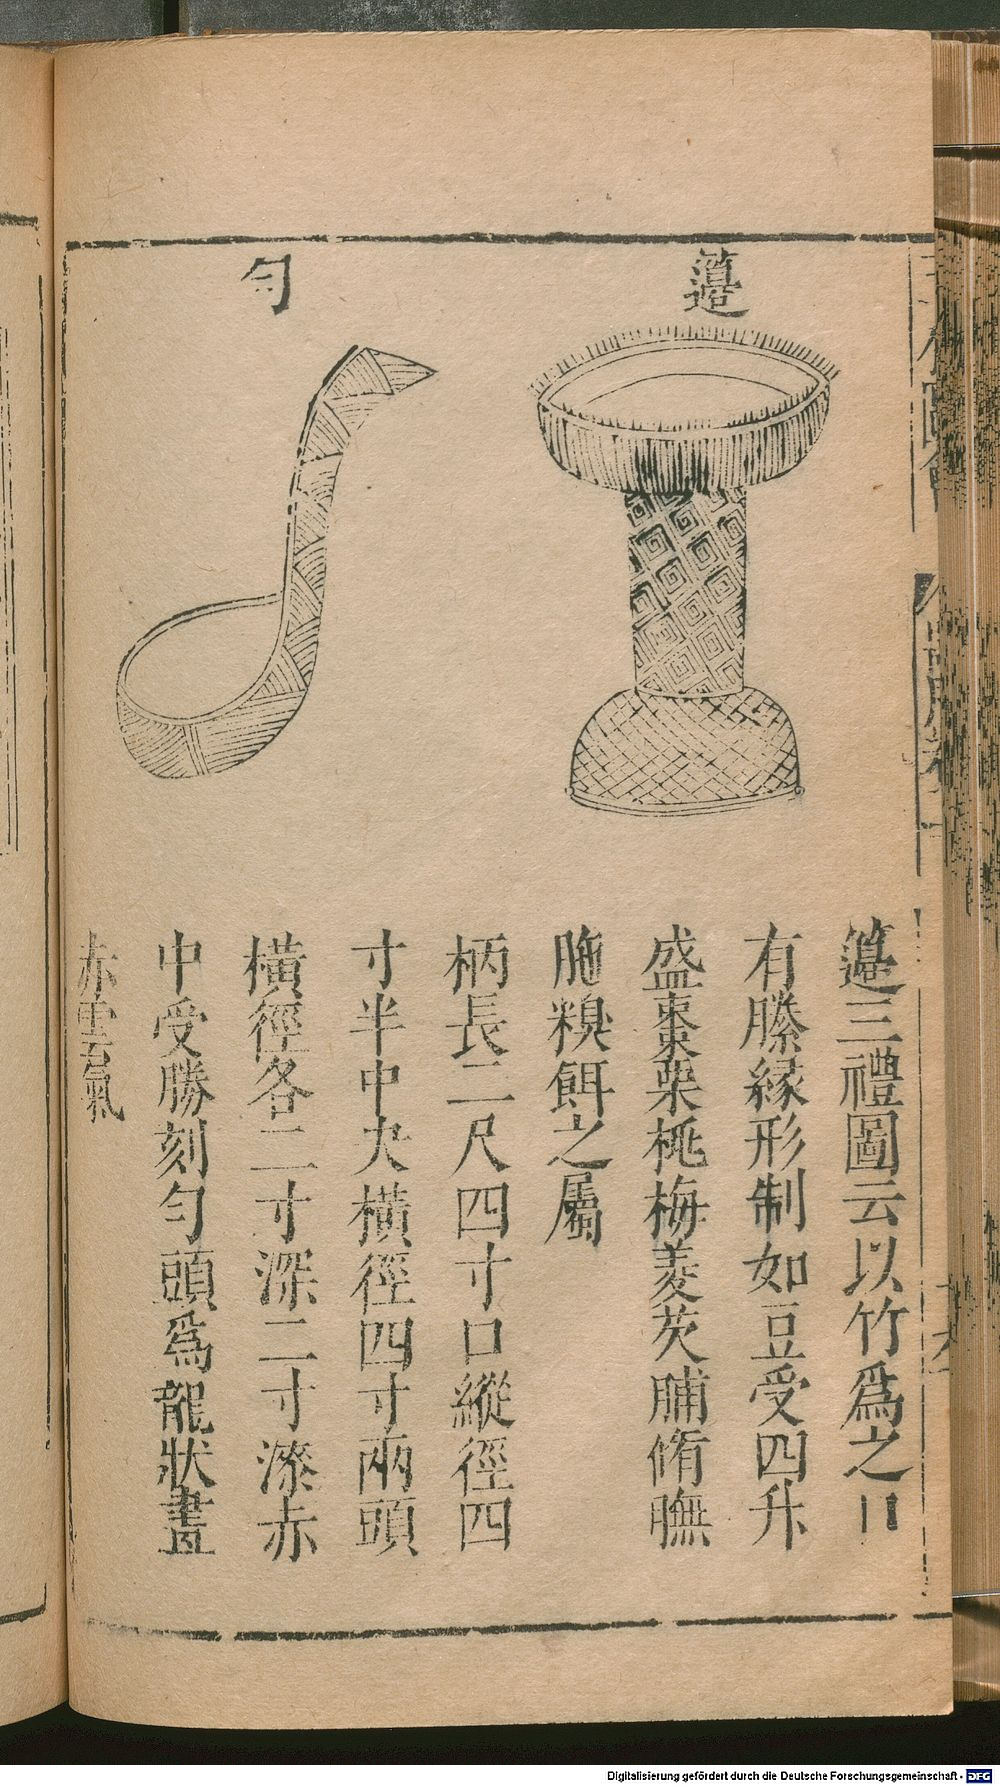 籩
勺
籩三禮圖云以竹爲之口
有縢緣形制如豆受四升
盛棗栗桃梅菱芡脯脩膴
胣糗餌之屬
柄長二尺四寸口縱徑四
寸半中央橫徑四寸兩頭
橫徑各二寸深二寸漆赤
中受勝刻勺頭爲龍狀畫
赤雲氣
Digitalisierung gefördert durch die Deutsche Forschungsgemeinschaft - DFG